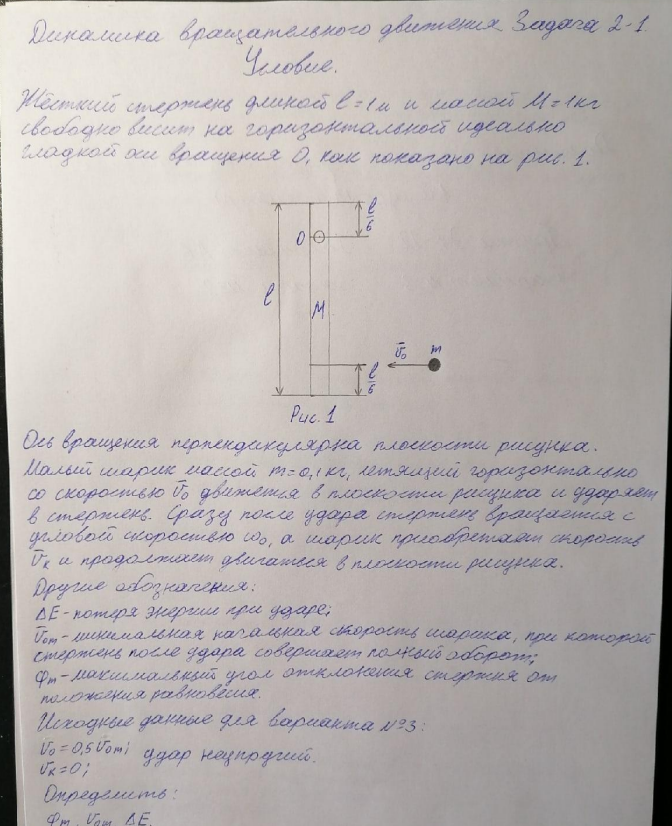 Динамика вращательного движения Задача 2-1
Условие.
Жёсткий стержень длиной l=1м и массой M=1кг
свободно висит на горизонтальной идеально
гладкой оси вращения O, как показано на рис. 1.
l/6
O
l
M
v̄₀ m
l/6
Рис. 1
Ось вращения перпендикулярна плоскости рисунка.
Малый шарик массой m=0,1кг, летящий горизонтально
со скоростью v̄₀ движется в плоскости рисунка и ударяет
в стержень. Сразу после удара стержень вращается с
угловой скоростью ω₀, а шарик приобретает скорость
v̄к и продолжает двигаться в плоскости рисунка.
Другие обозначения:
ΔE-потеря энергии при ударе;
v̄₀m-минимальная начальная скорость шарика, при которой
стержень после удара совершает полный оборот;
φm-максимальный угол отклонения стержня от
положения равновесия.
Исходные данные для варианта №3:
v₀=0,5v₀m; удар неупругий.
vк=0;
Определить:
φm, v₀m, ΔE.